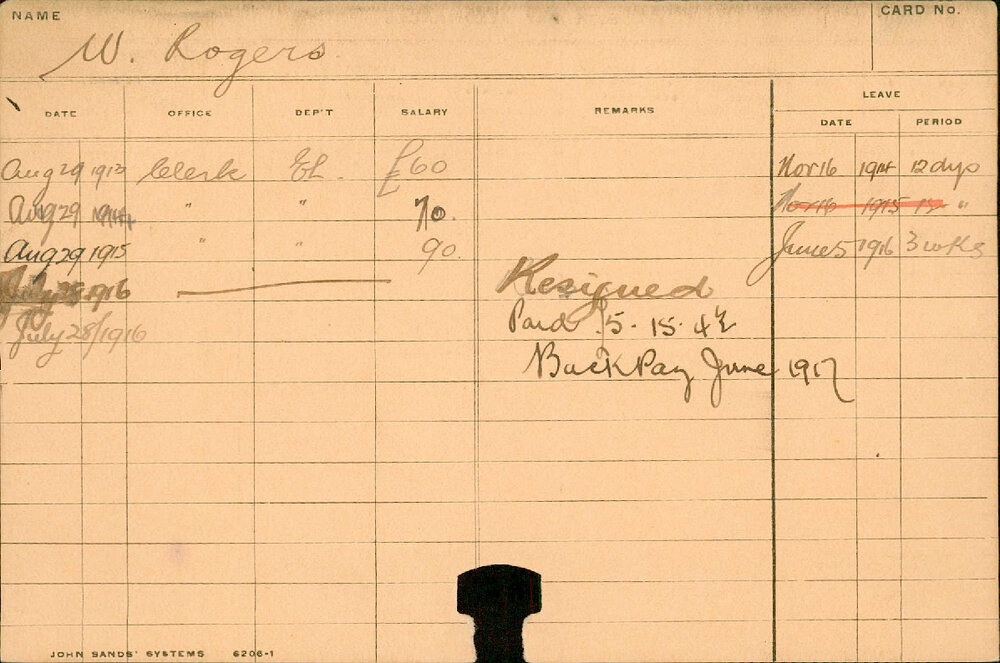 NAME
CARD NO.
W. Rogers
LEAVE
DATE OFFICE DEP'T SALARY REMARKS DATE PERIOD
Aug 29 1913 Clerk £60 Nov 16 1914 12 dys
Aug 29 1914 " " 70. Nov 16 1915 12 "
Aug 29 1915 " " 90. June 5 1916 3 wks
July 28 1916 Resigned
July 28/1916 Paid £5-15-4½
Back Pay June 1917
JOHN SANDS' SYSTEMS 6206-1